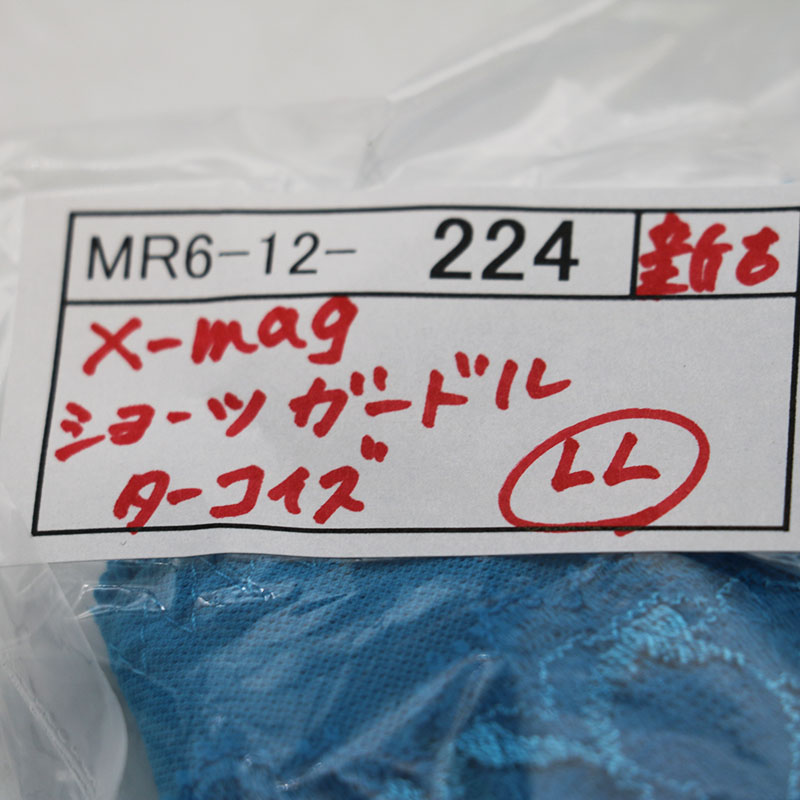 MR6-12- 224 新古
X-mag
ショーツ ガードル
ターコイズ
LL